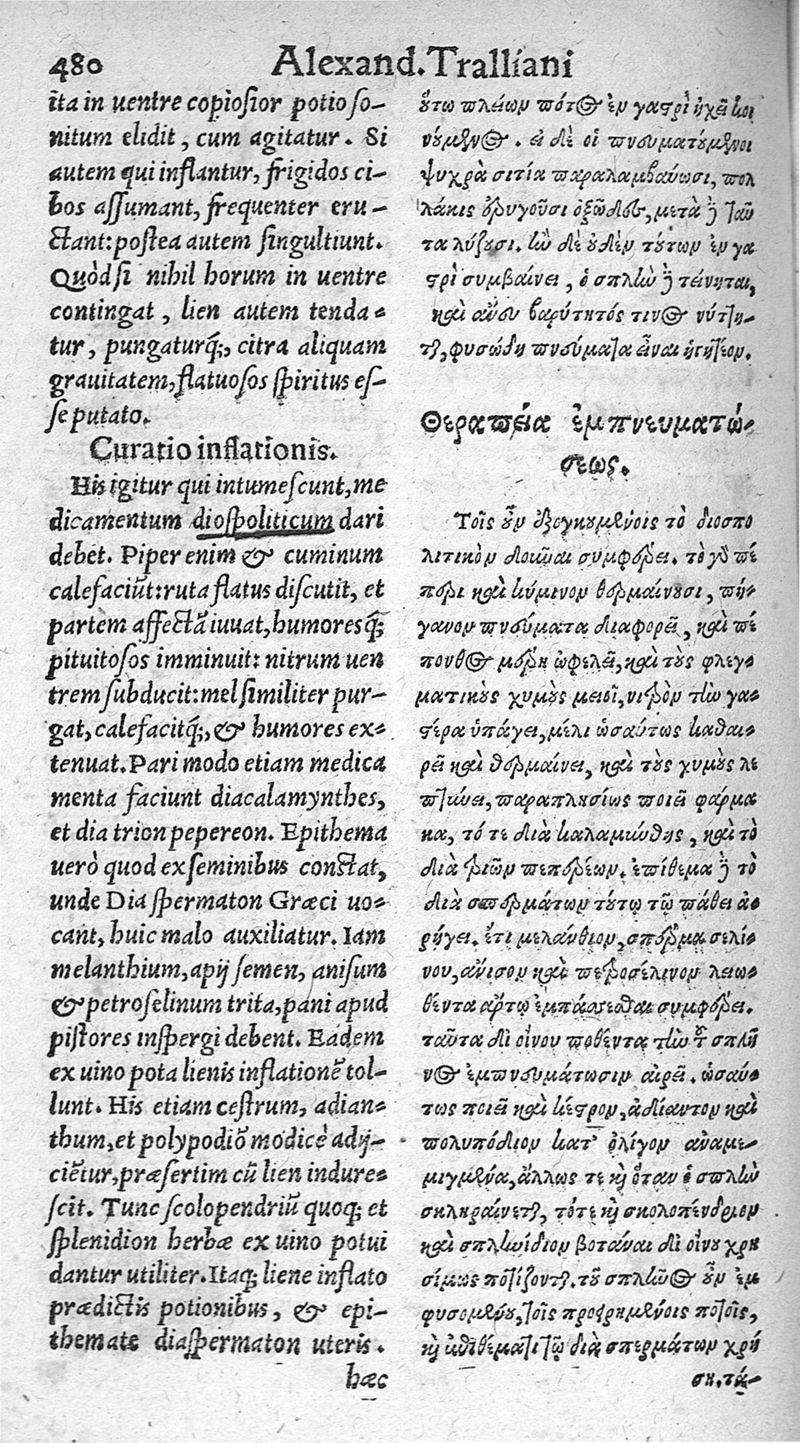 480 Alexand. Tralliani
ita in uentre copiosior potio so-
nitum elidit, cum agitatur. Si
autem qui inflantur, frigidos ci-
bos assumant, frequenter eru-
ctant: postea autem singultiunt.
Quòd si nihil horum in uentre
contingat, lien autem tenda-
tur, pungaturq́;, citra aliquam
grauitatem, flatuosos spiritus es-
se putato.
Curatio inflationis.
His igitur qui intumescunt, me
dicamentum diospoliticum dari
debet. Piper enim & cuminum
calefaciũt: ruta flatus discutit, et
partem affectã iuuat, humoresq́;
pituitosos imminuit: nitrum uen
trem subducit: mel similiter pur-
gat, calefacitq́;, & humores ex-
tenuat. Pari modo etiam medica
menta faciunt diacalamynthes,
et dia trion pepereon. Epithema
uerò quod ex seminibus constat,
unde Dia spermaton Græci uo-
cant, huic malo auxiliatur. Iam
melanthium, apij semen, anisum
& petroselinum trita, pani apud
pistores inspergi debent. Eadem
ex uino pota lienis inflationẽ tol-
lunt. His etiam cestrum, adian-
thum, et polypodiõ modicè adij-
ciẽtur, præsertim cũ lien indure-
scit. Tunc scolopendriũ quoq; et
splenidion herbæ ex uino potui
dantur utiliter. Itaq; liene inflato
prædictis potionibus, & epi-
themate diaspermaton uteris.
hæc
ὅτω πλείων πότος ἐν γαστρὶ ἠχεῖ κι
νούμενος. εἰ δὲ οἱ πνευματούμενοι
ψυχρὰ σιτία παραλαμβάνωσι, πολ
λάκις ἐρυγοῦσι ὀξῶδες, μετὰ ἢ ταῦ
τα λύζουσι. ἢν δὲ οὐδὲν τούτων ἐν γα
στρὶ συμβαίνει, ὁ σπλὴν ἢ τείνηται,
καὶ ἄνευ βαρύτητός τινος νύττη-
ται, φυσώδη πνεύματα εἶναι ἡγητέον.
Θεραπεία ἐμπνευματώ-
σεως.
Τοῖς οὖν ἐξογκουμένοις τὸ διοσπο
λιτικὸν δοῦναι συμφέρει. τὸ γὰρ πέ
περι καὶ κύμινον θερμαίνουσι, πή-
γανον πνεύματα διαφορεῖ, καὶ πε
πονθὸς μέρη ὠφελεῖ, καὶ τοὺς φλεγ-
ματικοὺς χυμοὺς μειοῖ, νίτρον τὴν γα-
στέρα ὑπάγει, μέλι ὡσαύτως καθαι-
ρεῖ καὶ θερμαίνει, καὶ τοὺς χυμοὺς λε
πτύνει, παραπλησίως ποιεῖ φάρμα
κα, τό τε διὰ καλαμίνθης, καὶ τὸ
διὰ τριῶν πεπέρεων. ἐπίθεμα ἢ τὸ
διὰ σπερμάτων τούτῳ τῷ πάθει ἀ-
ρήγει. ἔτι μελάνθιον, σπέρμα σελί-
νου, ἄνισον καὶ πετροσέλινον λειω-
θέντα ἄρτῳ ἐμπάσσεσθαι συμφέρει.
ταῦτα δι οἴνου ποθέντα τὴν τ σπλη
νὸς ἐμπνευμάτωσιν αἱρεῖ. ὡσαύ-
τως ποιεῖ καὶ κέστρον, ἀδίαντον καὶ
πολυπόδιον κατ' ὀλίγον ἀναμε-
μιγμένα, ἄλλως τε καὶ ὅταν ὁ σπλὴν
σκληραίνεται, τότε καὶ σκολοπένδριον
καὶ σπληνίδιον βοτάναι δι οἴνου χρη
σίμως ποτίζονται. τοῦ σπληνὸς οὖν ἐμ
φυσομένου, τοῖς προειρημένοις ποτοῖς,
καὶ ἐπιθέματι τῷ διὰ σπερμάτων χρή
ση. τά-